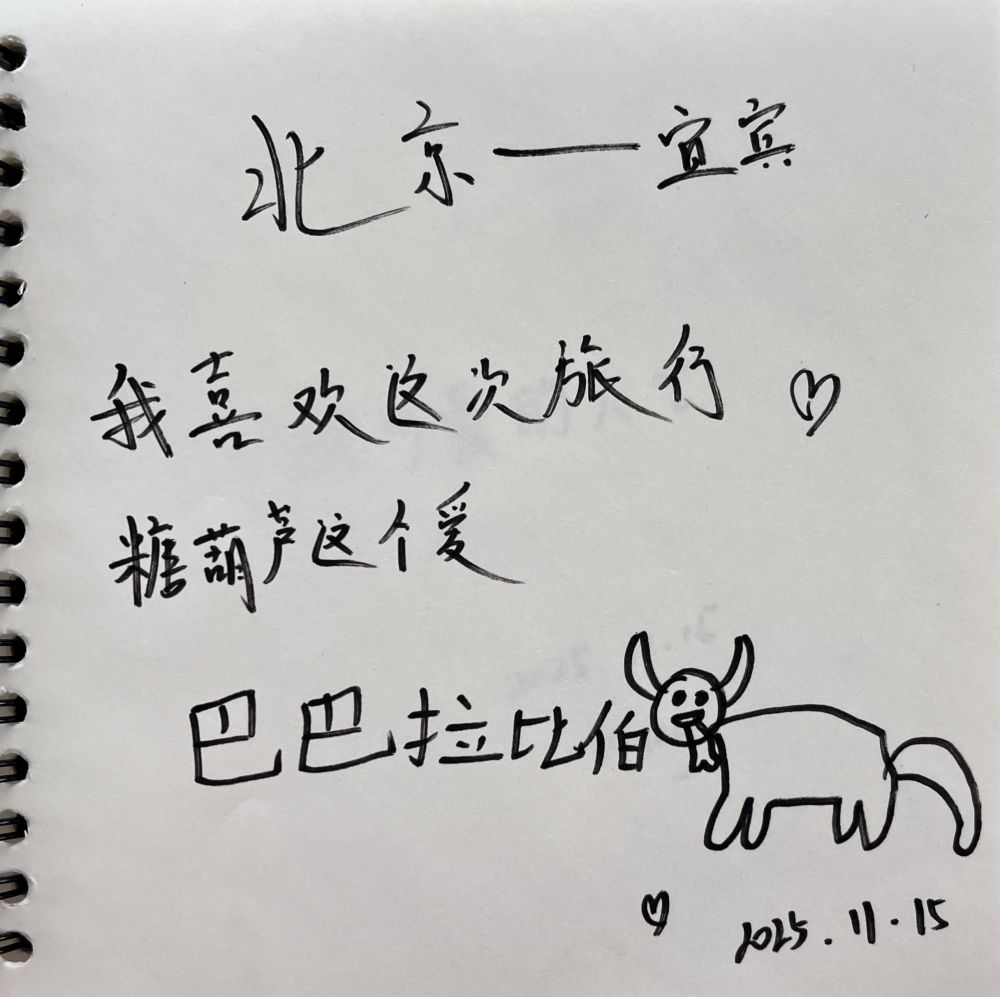 北京——宜宾
我喜欢这次旅行♡
糖葫芦这个爱
巴巴拉比伯
♡ 2025.11.15